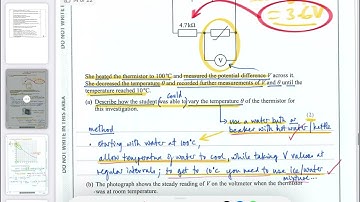 DO NOT WRITE I
= 3.6V
4.7kΩ
V
She heated the thermistor to 100°C and measured the potential difference V across it.
She decreased the temperature θ and recorded further measurements of V and θ until the
temperature reached 10°C.
could
(a) Describe how the student was able to vary the temperature θ of the thermistor for
this investigation.
(2)
use a water bath or
beaker with hot water / kettle
method
• starting with water at 100°C,
allow temperature of water to cool, while taking V values at
regular intervals; to get to 10°C you need to use ice/water
mixture...
(b) The photograph shows the steady reading of V on the voltmeter when the thermistor
was at room temperature.
DO NOT WRITE IN THIS AREA